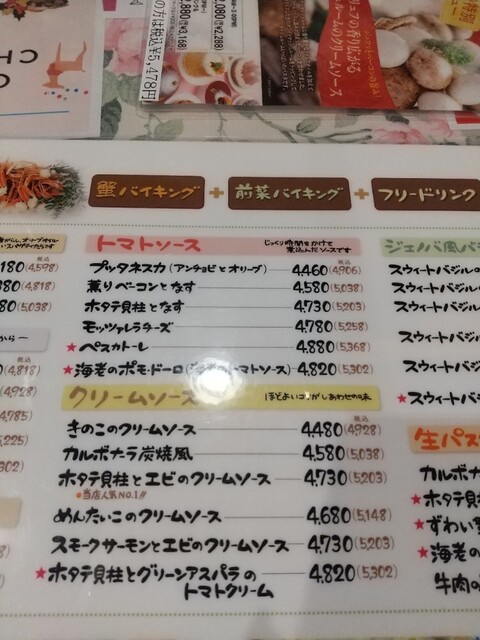 の方は税込¥5,478円
2,880(税込¥3,168)
2,080(税込¥2,288)
香り広がる
ルームのクリームソース
CH
蟹バイキング + 前菜バイキング + フリードリンク
トマトソース じっくり時間をかけて
煮込んだソースです
税込
プッタネスカ(アンチョビとオリーブ) 4,460(4,906)
薫りベーコンとなす 4,580(5,038)
ホタテ貝柱となす 4,730(5,203)
モッツァレラチーズ 4,780(5,258)
★ペスカトーレ 4,880(5,368)
★海老のポモ・ドーロ( トマトソース) 4,820(5,302)
クリームソース ほどよい しあわせの味
税込
きのこのクリームソース 4,480(4,928)
カルボナーラ炭焼風 4,580(5,038)
ホタテ貝柱とエビのクリームソース 4,730(5,203)
※当店人気No.1!!
めんたいこのクリームソース 4,680(5,148)
スモークサーモンとエビのクリームソース 4,730(5,203)
★ホタテ貝柱とグリーンアスパラの
トマトクリーム 4,820(5,302)
税込
180(4,598)
380(4,818)
580(5,038)
から
税込
(4,818)
(4,928)
4,785)
5,225)
5,302)
ジェノバ風バ
スウィートバジルの
スウィートバジルの
スウィートバジル
スウィートバジル
スウィートバジル
★スウィートバジル
生パス
カルボナ
★ホタテ貝
★ずわい
★海老の
牛肉の